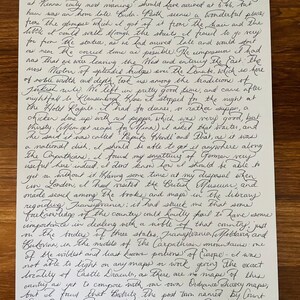 at Vienna early next morning; should have arrived at 6:46, but
train was an hour late. Buda-Pesth seems a wonderful place,
from the glimpse which I got of it from the train and the
little I could walk through the streets. I feared to go very
far from the station, as we had arrived late and would start
as near the correct time as possible. The impression I had
was that we were leaving the West and entering the East; the
most Western of splendid bridges over the Danube, which is here
of noble width and depth, took us among the traditions of
Turkish rule. We left in pretty good time, and came after
nightfall to Klausenburg. Here I stopped for the night at
the Hotel Royale. I had for dinner, or rather supper, a
chicken done up with red pepper, which was very good but
thirsty (Mem. get recipe for Mina). I asked the waiter, and
he said it was called "paprika hendl," and that, as it was
a national dish, I should be able to get it anywhere along
the Carpathians. I found my smattering of German very
useful here; indeed, I don't know how I should be able to
get on without it. Having some time at my disposal when
in London, I had visited the British Museum, and
made search among the books and maps in the library
regarding Transylvania; it had struck me that some
foreknowledge of the country could hardly fail to have some
importance in dealing with a noble of that country.
on the borders of three states, Transylvania, Moldavia and
Bukovina, in the midst of the Carpathian mountains; one
of the wildest and least known portions of Europe. I was
not able to light on any map or work giving the exact
locality of Castle Dracula, as there are no maps of this
country as yet to compare with our own Ordnance Survey maps;
but I found that Bistritz, the post town named by Count